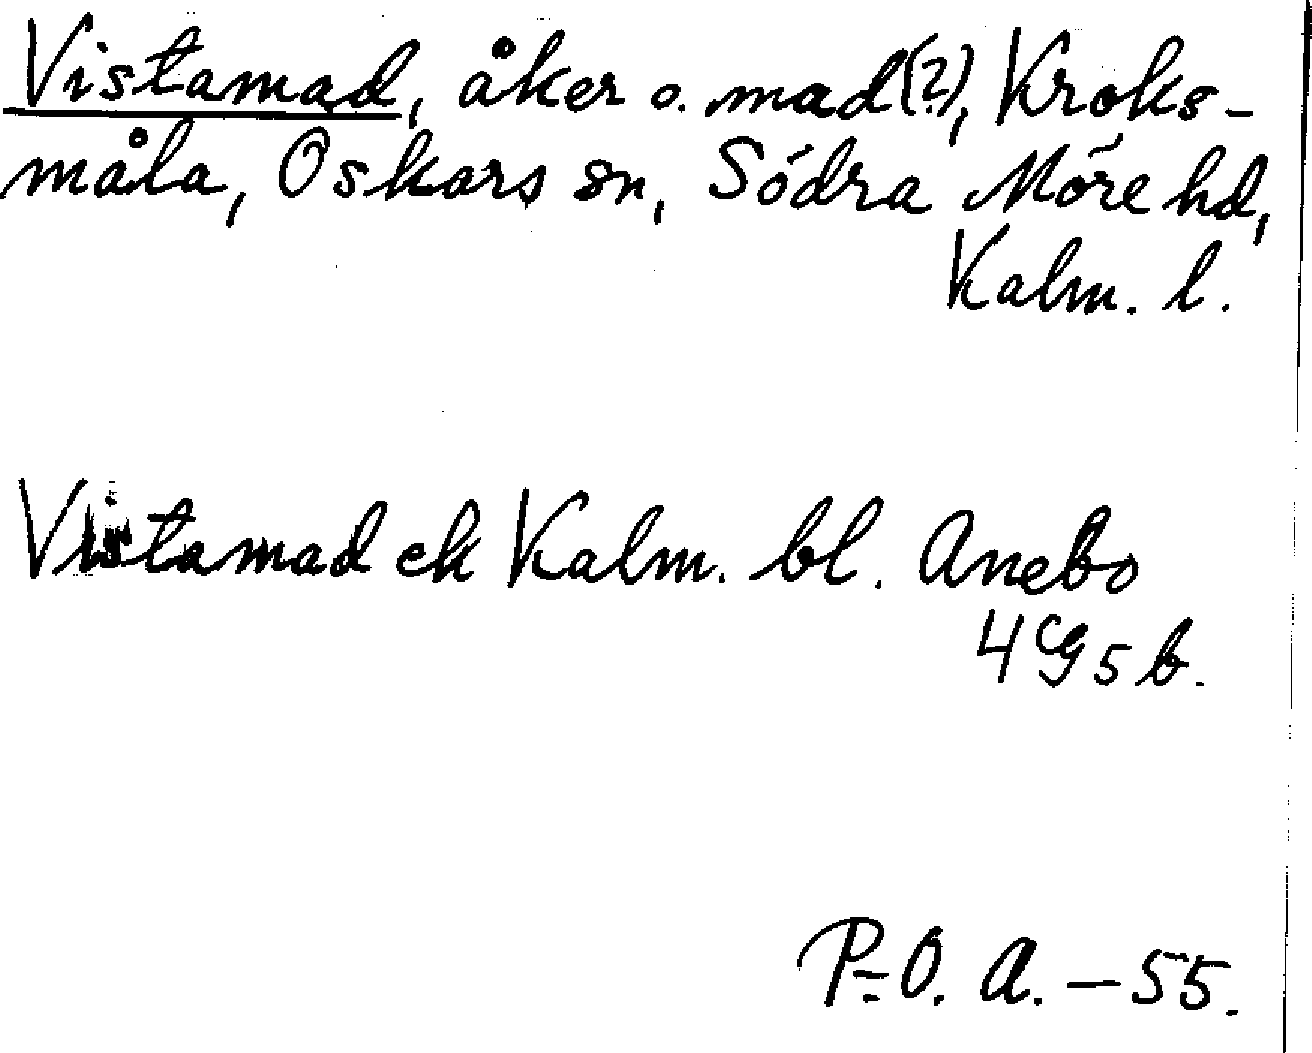 Vistamad, åker o. mad(?), Kroks-
måla, Oskars sn, Södra Möre hd,
Kalm. l.
Vistamad ek Kalm. bl. Anebo
4 G 5 b.
P.-O. A. - 55.